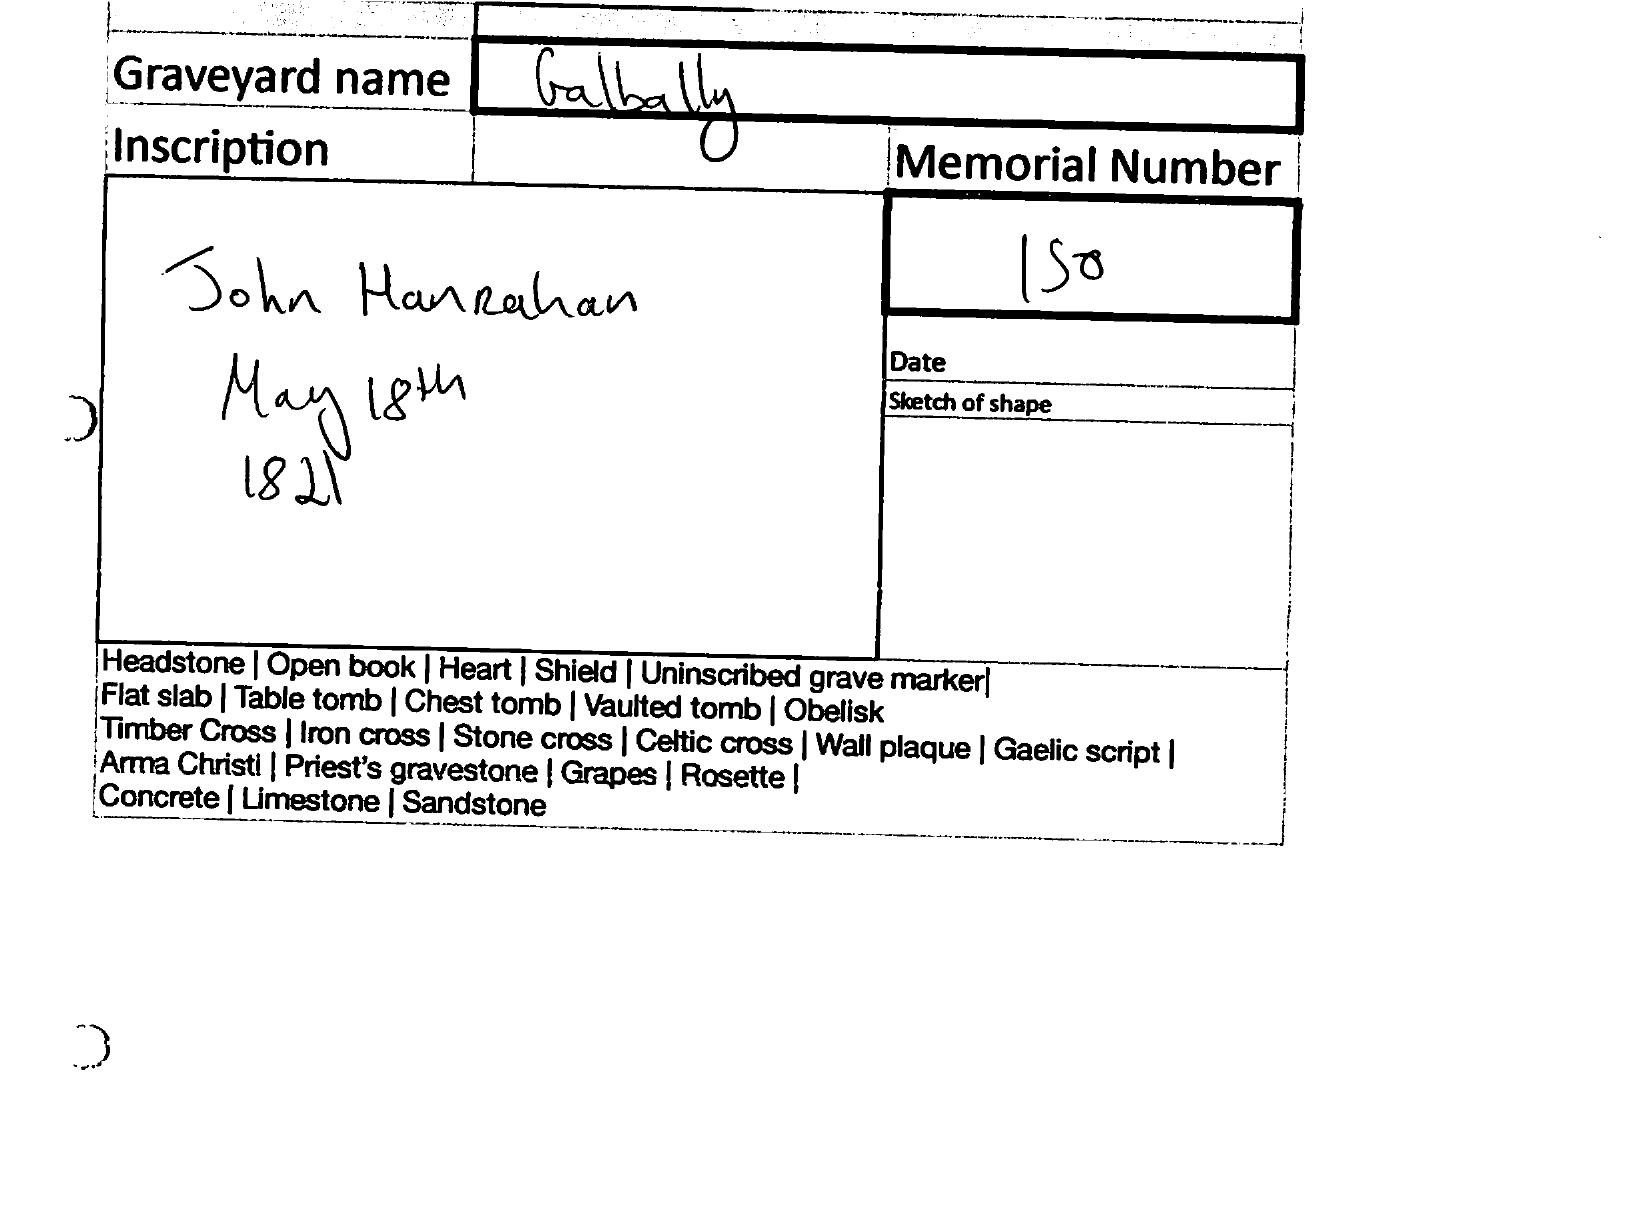 Graveyard name Galbally
Inscription Memorial Number
150
John Hanrahan
May 18th
1821
Date
Sketch of shape
Headstone | Open book | Heart | Shield | Uninscribed grave marker|
Flat slab | Table tomb | Chest tomb | Vaulted tomb | Obelisk
Timber Cross | Iron cross | Stone cross | Celtic cross | Wall plaque | Gaelic script |
Arma Christi | Priest's gravestone | Grapes | Rosette |
Concrete | Limestone | Sandstone